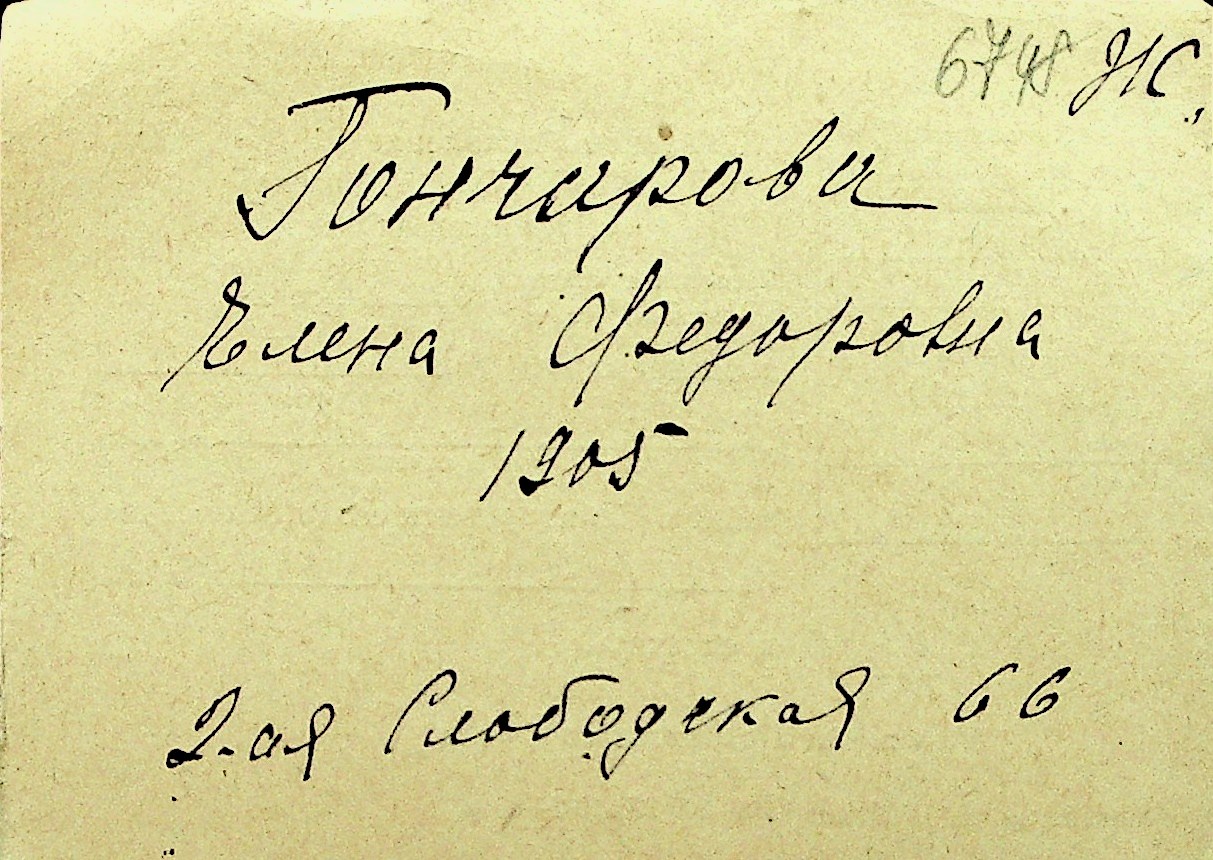 6748 Ж.
Гончарова
Елена Федоровна
1905
2-ая Слободская 66